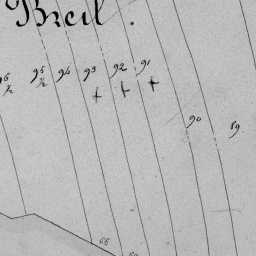 Breil.
96 ½ 95 ½ 94 93 92 91
90 89